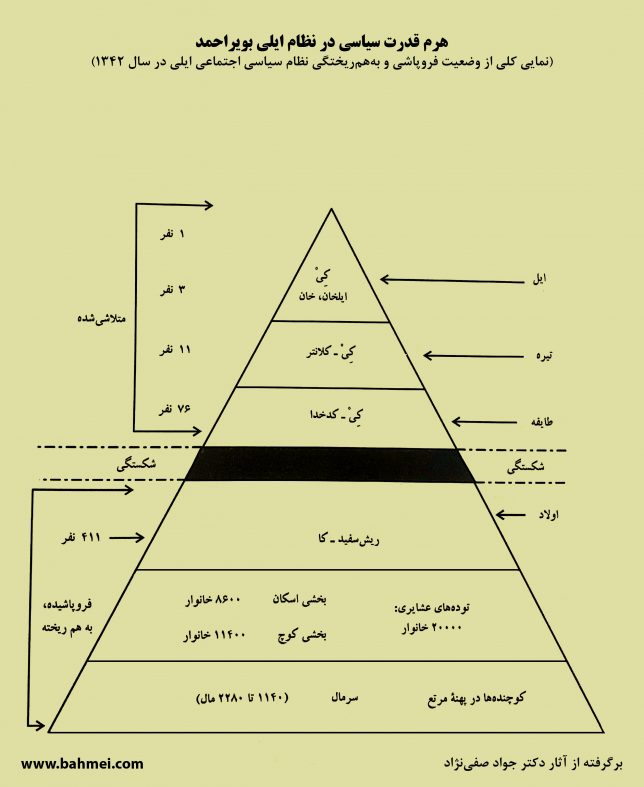 هرم قدرت سیاسی در نظام ایلی بویراحمد
(نمایی کلی از وضعیت فروپاشی و به‌هم‌ریختگی نظام سیاسی اجتماعی ایلی در سال ۱۳۴۲)
۱ نفر
کِیْ
ایل
۳ نفر
ایلخان، خان
متلاشی‌شده
تیره
کِیْ ـ کلانتر
۱۱ نفر
طایفه
کِیْ ـ کدخدا
۷۶ نفر
شکستگی
شکستگی
اولاد
ریش‌سفید ـ کا
۴۱۱ نفر
توده‌های عشایری:
۲۰۰۰۰ خانوار
بخشی اسکان ۸۶۰۰ خانوار
بخشی کوچ ۱۱۴۰۰ خانوار
فروپاشیده،
به هم ریخته
کوچنده‌ها در پهنهٔ مرتع سرمال (۱۱۴۰ تا ۲۲۸۰ مال)
برگرفته از آثار دکتر جواد صفی‌نژاد
www.bahmei.com